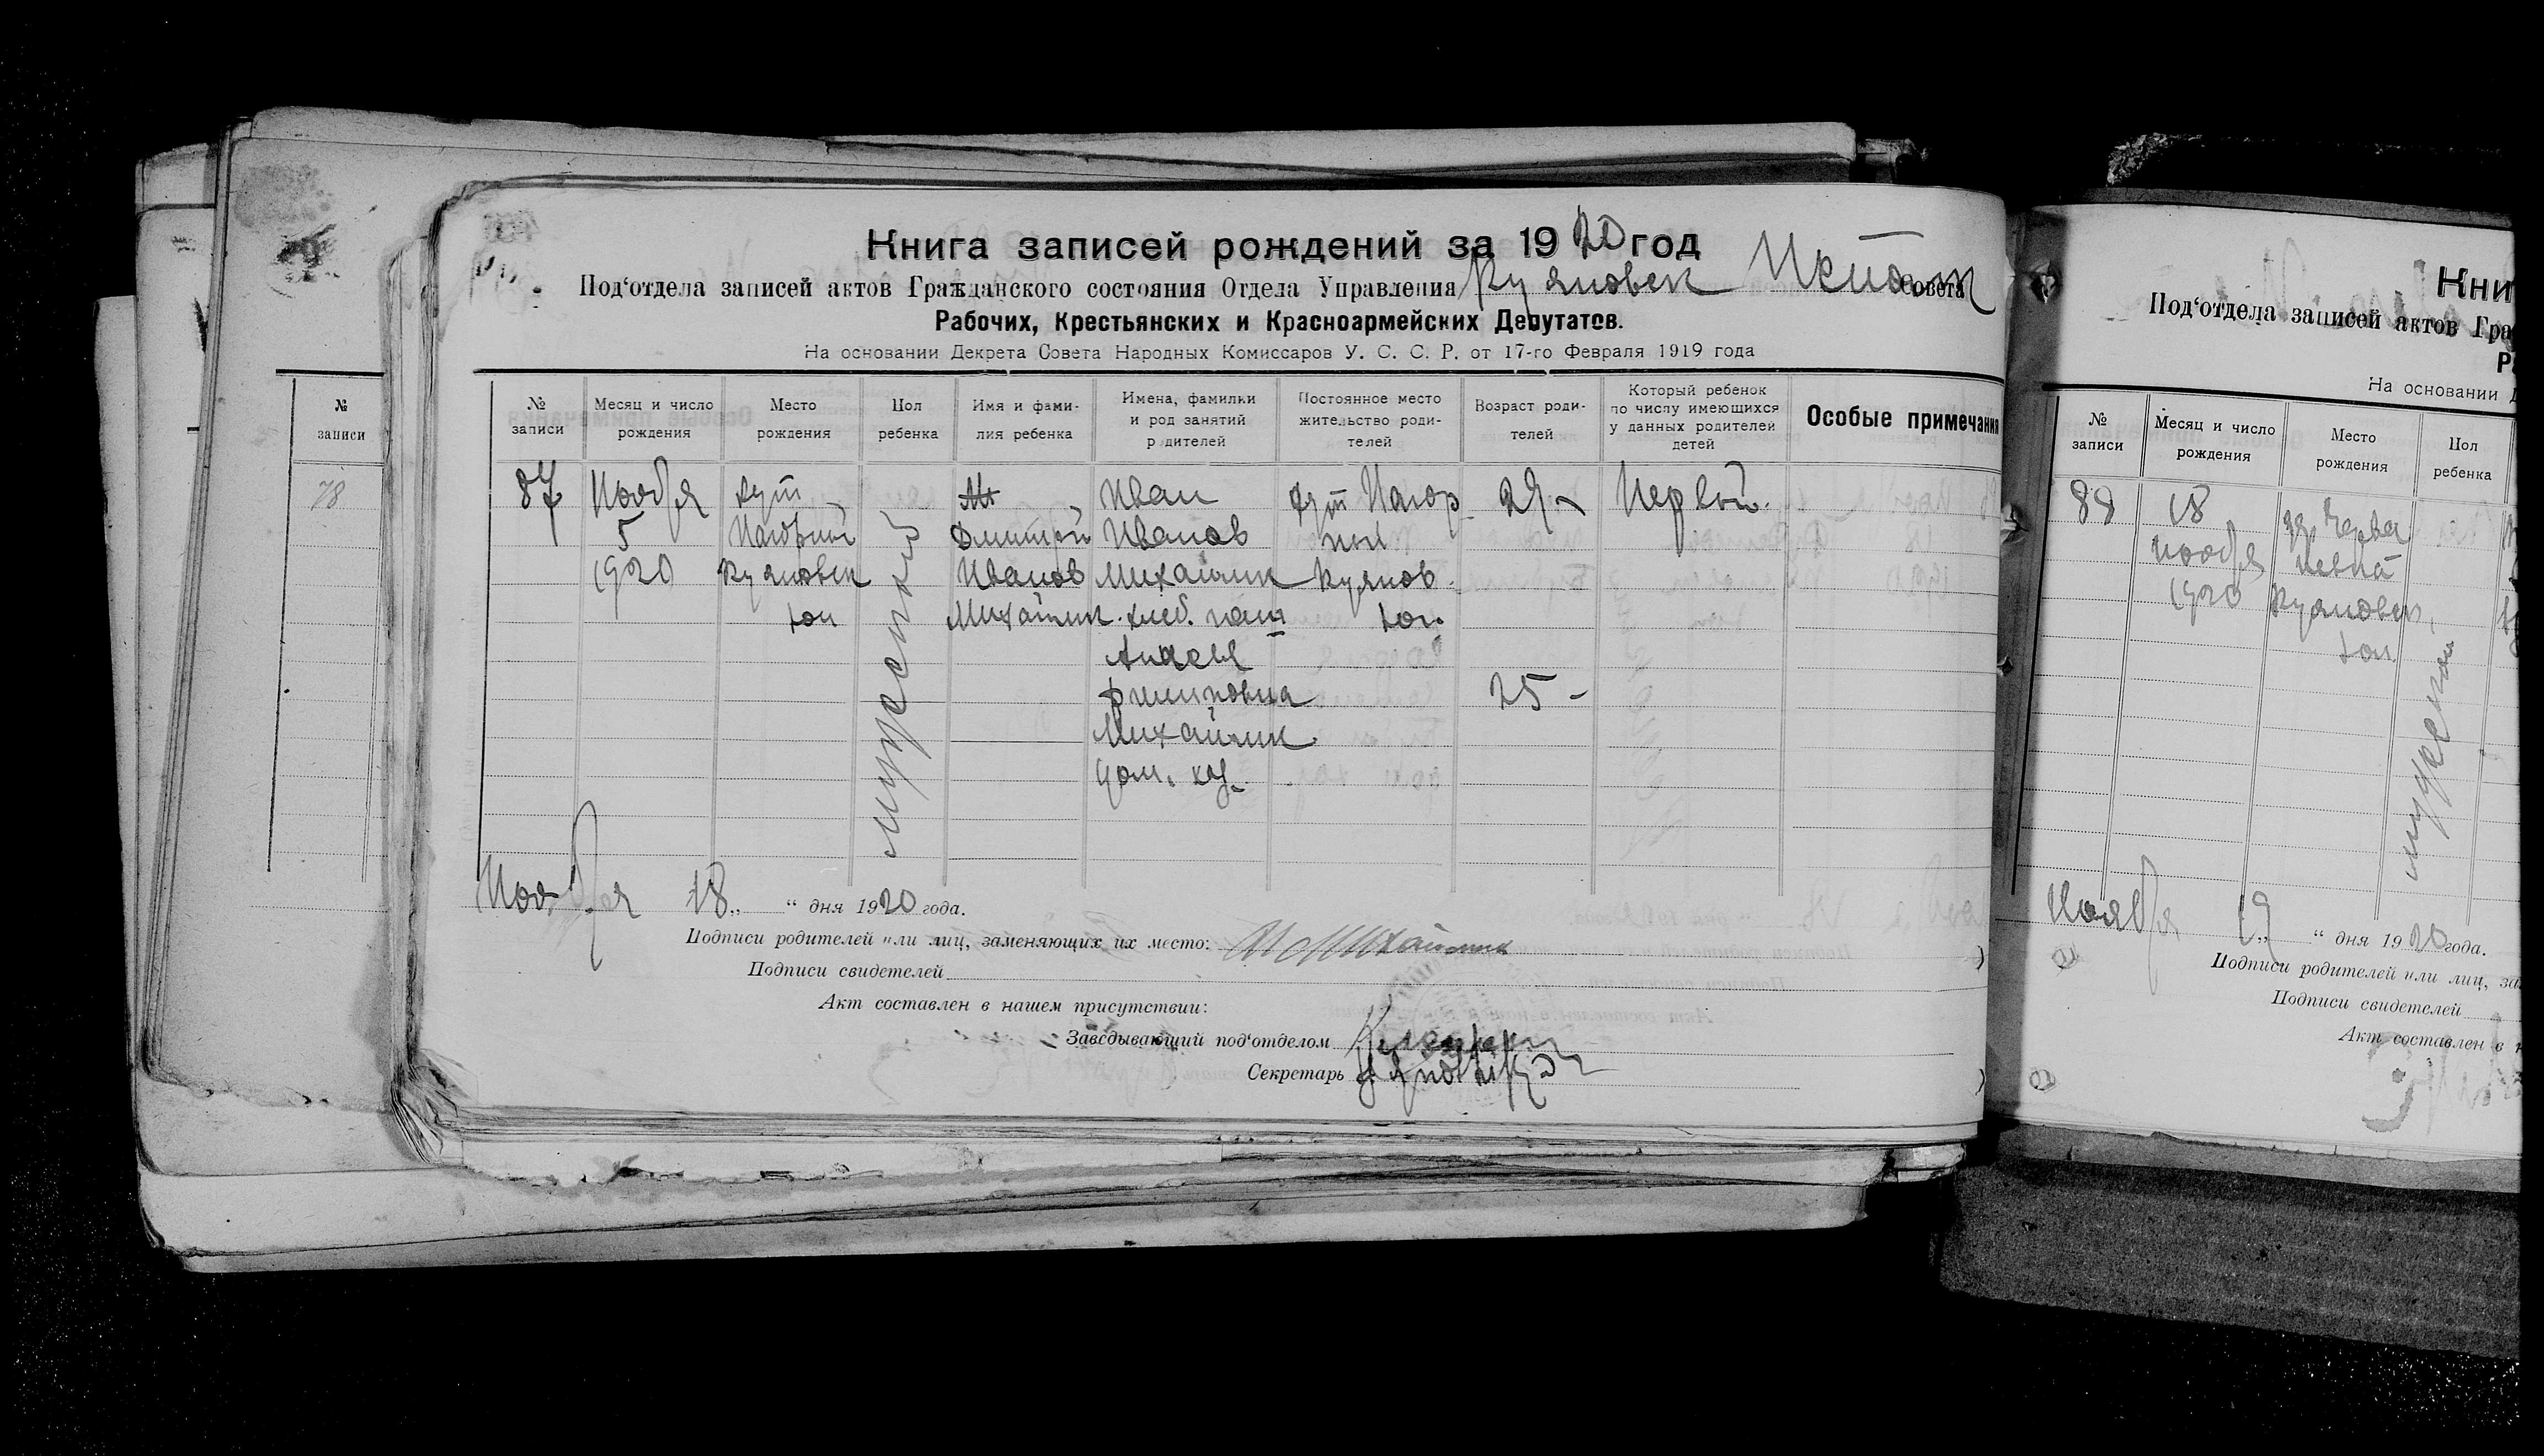 Книга записей рождений за 1920 год
Под'отдела записей актов Гражданского состояния Отдела Управления Куяновск Исполк Совета
Рабочих, Крестьянских и Красноармейских Депутатов.
На основании Декрета Совета Народных Комиссаров У. С. С. Р. от 17-го Февраля 1919 года
№ записи
Месяц и число рождения
Место рождения
Пол ребенка
Имя и фамилия ребенка
Имена, фамилки и род занятий родителей
Постоянное место жительство родителей
Возраст родителей
Который ребенок по числу имеющихся у данных родителей детей
Особые примечания
87
Ноября
5
1920
хут
Нагорный
Куяновск
вол
мужеский
Дмитрий
Иванов
Михайлик
Иван
Иванов
Михайлик
хлеб. паш
Филиповна
Михайлик
дом. хоз.
хут Нагор
ный
Куянов.
вол.
29
25 -
Первый.
Ноября 18 „ “ дня 1920 года.
Подписи родителей или лиц, заменяющих их место: И Михайлик
Подписи свидетелей
Акт составлен в нашем присутствии:
Заведывающий под'отделом
Секретарь
№
записи
78
Кни
Под'отдела записей актов Гра
Р
На основании
№ записи
Месяц и число рождения
Место рождения
Пол ребенка
88
18
ноября
1920
Куяновск
вол.
мужеский
Ноября 19 „ “ дня 1920 года.
Подписи родителей или лиц, за
Подписи свидетелей
Акт составлен в н